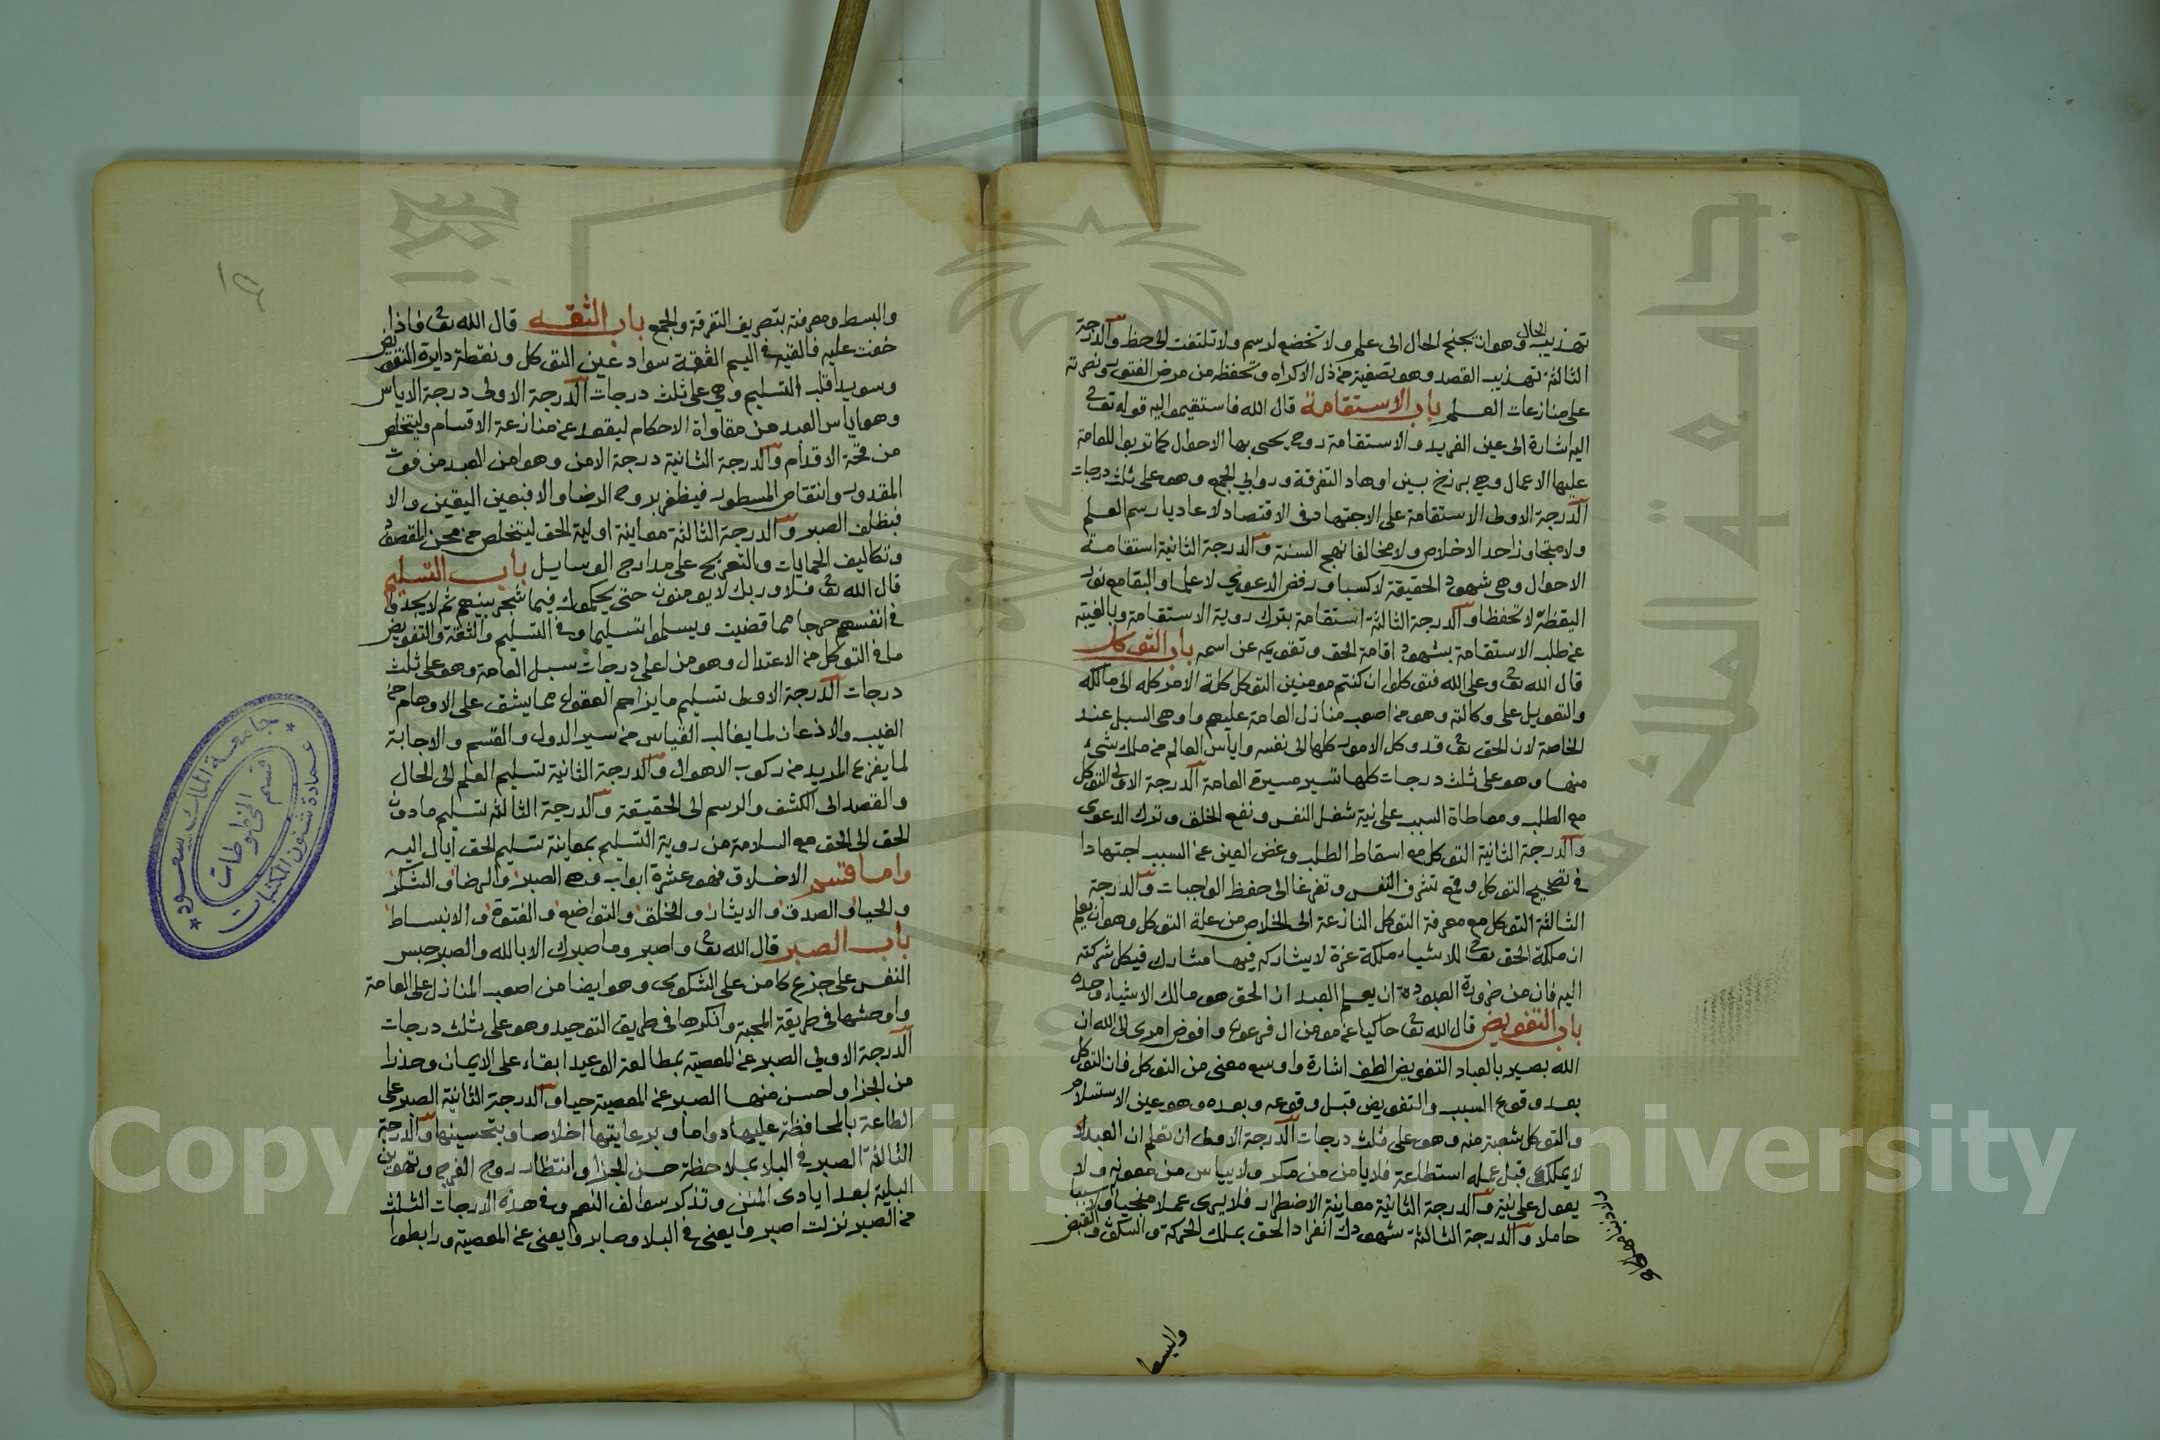 تهذيب الحال وهو ان لا يجنح الحال الى علم ولا تخضع لرسم ولا تلتفت الى حظ والدرجة
الثالثة تهذيب القصد وهو تصفيته من ذل الاكراه وتحفظه من مرض الفتور ونصرته
على منازعات العلم باب الاستقامة قال الله فاستقيموا اليه قوله تعالى
اليه اشارة الى عين التفريد والاستقامة روح يحيى بها الاحوال كما تربوا للعامة
عليها الاعمال وهي برزخ بين اوهاد التفرقة وروابي الجمع وهو على ثلث درجات
الدرجة الاولى الاستقامة على الاجتهاد في الاقتصاد لا عاديا رسم العلم
ولا متجاوزا حد الاخلاص ولا مخالفا نهج السنة والدرجة الثانية استقامة
الاحوال وهي شهود الحقيقة لا كسبا ورفض الدعوى لا علما والبقا مع نور
اليقظة لا تحفظا والدرجة الثالثة استقامة بترك روية الاستقامة وبالغيبة
عن طلب الاستقامة بشهود اقامة الحق وتقويمه عن اسمه باب التوكل
قال الله تعالى وعلى الله فتوكلوا ان كنتم مومنين التوكل كلة الامر كله الى مالكه
والتعويل على وكالته وهو من اصعب منازل العامة عليهم واوهى السبل عند
الخاصة لان الحق تعالى قد وكل الامور كلها الى نفسه واياس العالم من ملك شيء
منها وهو على ثلث درجات كلها تسير مسيرة العامة الدرجة الاولى التوكل
مع الطلب ومعاطاة السبب على نية شغل النفس ونفع الخلق وترك الدعوى
والدرجة الثانية التوكل مع اسقاط الطلب وغض العين عن السبب اجتهادا
في تصحيح التوكل وقمع تشرف النفس وتفرغا الى حفظ الواجبات والدرجة
الثالثة التوكل مع معرفة التوكل النازعة الى الخلاص من علة التوكل وهو ان يعلم
ان ملكة الحق تعالى للاشياء ملكة عزة لا يشاركه فيها مشارك فيكل شركته
اليه فان من ضرورة العبودة ان يعلم العبد ان الحق هو مالك الاشياء وحده
باب التفويض قال الله تعالى حاكيا عن مومن ال فرعون وافوض امري الى الله ان
الله بصير بالعباد التفويض الطف اشارة واوسع معنى من التوكل فان التوكل
بعد وقوع السبب والتفويض قبل وقوعه وبعده وهو عين الاستسلام
والتوكل شعبة منه وهو على ثلث درجات الدرجة الاولى ان تعلم ان العبد
لا يملك قبل عمله استطاعة فلا يامن من مكر ولا يياس من معونة ولا
يعول على نية والدرجة الثانية معاينة الاضطرار فلا يرى عملا منجيا ولا سببا
حاملا والدرجة الثالثة شهودك انفراد الحق بملك الحركة والسكون والقبض
والبسط
والبسط ومعرفته بتصريف التفرقة والجمع باب الثقه قال الله تعالى فاذا
خفت عليه فالقيه في اليم الثقة سواد عين التوكل ونقطة دايرة التفويض
وسويدا قلب التسليم وهي على ثلث درجات الدرجة الاولى درجة الاياس
وهو اياس العبد من مقاواة الاحكام ليقعد عن منازعة الاقسام وليتخلص
من قحة الاقدام والدرجة الثانية درجة الامن وهو امن العبد من فوت
المقدور وانتقاص المسطور فيظفر بروح الرضا والا فبعين اليقين والا
فبظلف الصبر والدرجة الثالثة معاينة اولية الحق ليتخلص من محن القصود
وتكاليف الحمايات والتعريج على مدارج الوسايل باب التسليم
قال الله تعالى فلا وربك لا يومنون حتى يحكموك فيما شجر بينهم ثم لا يجدوا
في انفسهم حرجا مما قضيت ويسلموا تسليما وفي التسليم والثقة والتفويض
ما في التوكل من الاعتدال وهو من اعلى درجات سبل العامة وهو على ثلث
درجات الدرجة الاولى تسليم ما يزاحم العقول مما يشق على الاوهام من
الغيب والاذعان لما يغالب القياس من سير الدول والقسم والاجابة
لما يفزع المريد من ركوب الاهوال والدرجة الثانية تسليم العلم الى الحال
والقصد الى الكشف والرسم الى الحقيقة والدرجة الثالثة تسليم ما دون
الحق الى الحق مع السلامة من روية التسليم بمعاينة تسليم الحق اياك اليه
واما قسم الاخلاق فهو عشرة ابواب وهي الصبر والرضا والشكر
والحيا والصدق والايثار والخلق والتواضع والفتوة والانبساط
باب الصبر قال الله تعالى واصبر وما صبرك الا بالله والصبر حبس
النفس على جزع كامن على الشكوى وهو ايضا من اصعب المنازل على العامة
واوحشها في طريقة المحبة وانكرها في طريق التوحيد وهو على ثلث درجات
الدرجة الاولى الصبر عن المعصية بمطالعة الوعيد ابقاء على الايمان وحذرا
من الجزا واحسن منها الصبر عن المعصية حيا والدرجة الثانية الصبر على
الطاعة بالمحافظة عليها دواما وبرعايتها اخلاصا وبتحسينها والدرجة
الثالثة الصبر في البلا بملاحظة حسن الجزا وانتظار روح الفرج وتهوين
البلية بعد ايادى المنن وتذكر سوالف النعم وفي هذه الدرجات الثلث
من الصبر نزلت اصبروا يعني في البلا وصابروا يعني عن المعصية ورابطوا
جامعة الملك سعود
عمادة شئون المكتبات
قسم المخطوطات
جامعة الملك سعود
Copyright © King Saud University